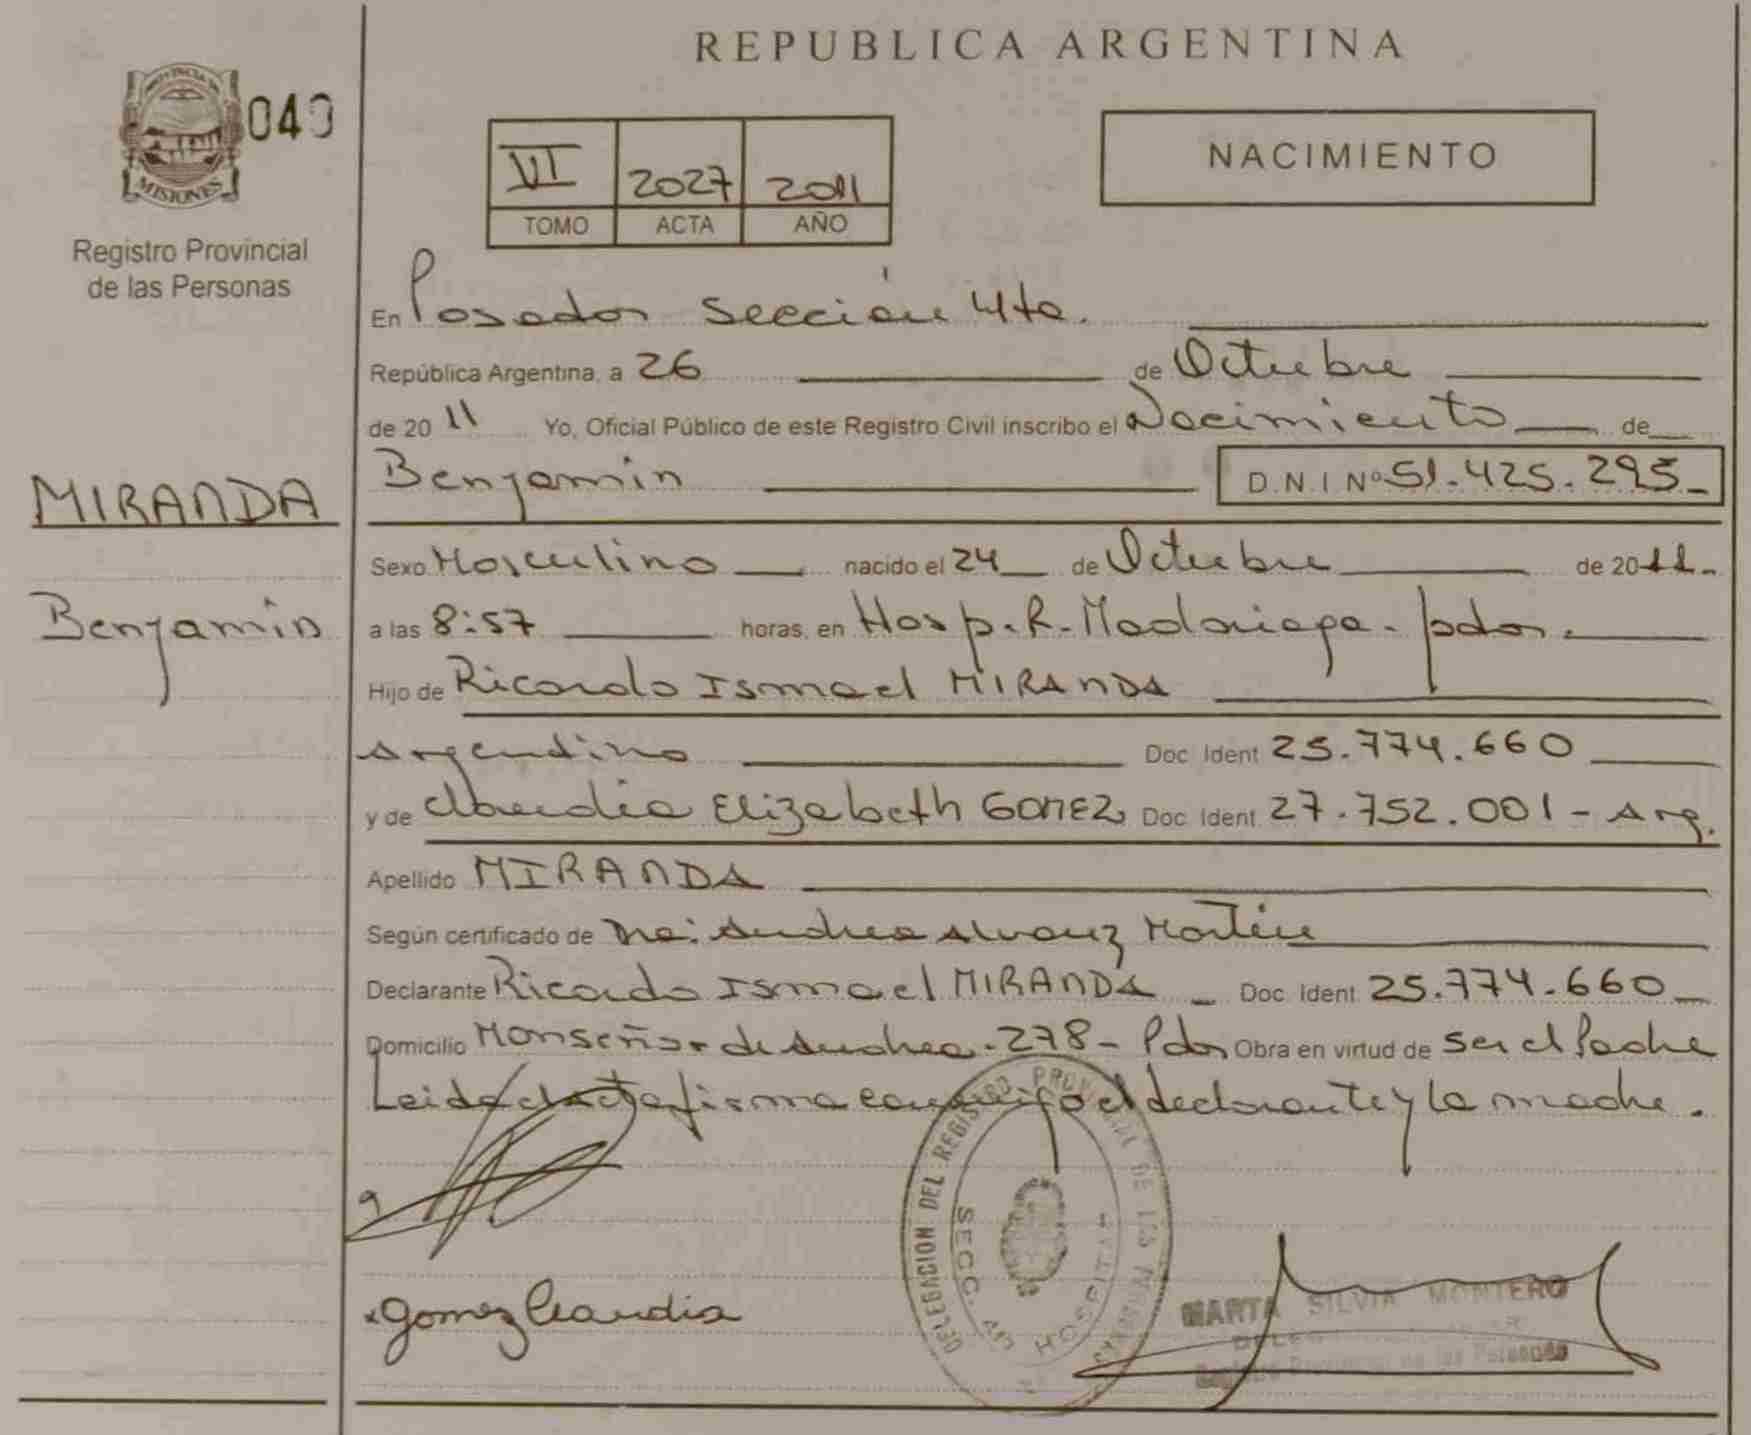 REPUBLICA ARGENTINA
PROVINCIA DE
MISIONES
040
Registro Provincial
de las Personas
VI 2027 2011
TOMO ACTA AÑO
NACIMIENTO
En Posadas Sección 4ta.
República Argentina, a 26 de Octubre
de 20 11 Yo, Oficial Público de este Registro Civil inscribo el Nacimiento de
Benjamin D.N.I Nº 51.425.295
MIRANDA
Benjamin
Sexo Masculino nacido el 24 de Octubre de 2011.
a las 8:57 horas, en Hosp. R. Madariaga - pdas.
Hijo de Ricardo Ismael MIRANDA
Argentino Doc. Ident 25.774.660
y de Claudia Elizabeth GOMEZ Doc. Ident. 27.752.001 - Arg.
Apellido MIRANDA
Según certificado de Dra: Andrea Alvarez Martin
Declarante Ricardo Ismael MIRANDA - Doc. Ident. 25.774.660
Domicilio Monseñor de Andrea - 278 - Pdas Obra en virtud de ser el Padre
Leida el acta firma conmigo el declarante y la madre.
DELEGACION DEL REGISTRO PROVINCIAL DE LAS PERSONAS
SECC. 4ta HOSPITAL
Gomez Claudia
MARTA SILVIA MONTERO
Registro Provincial de las Personas